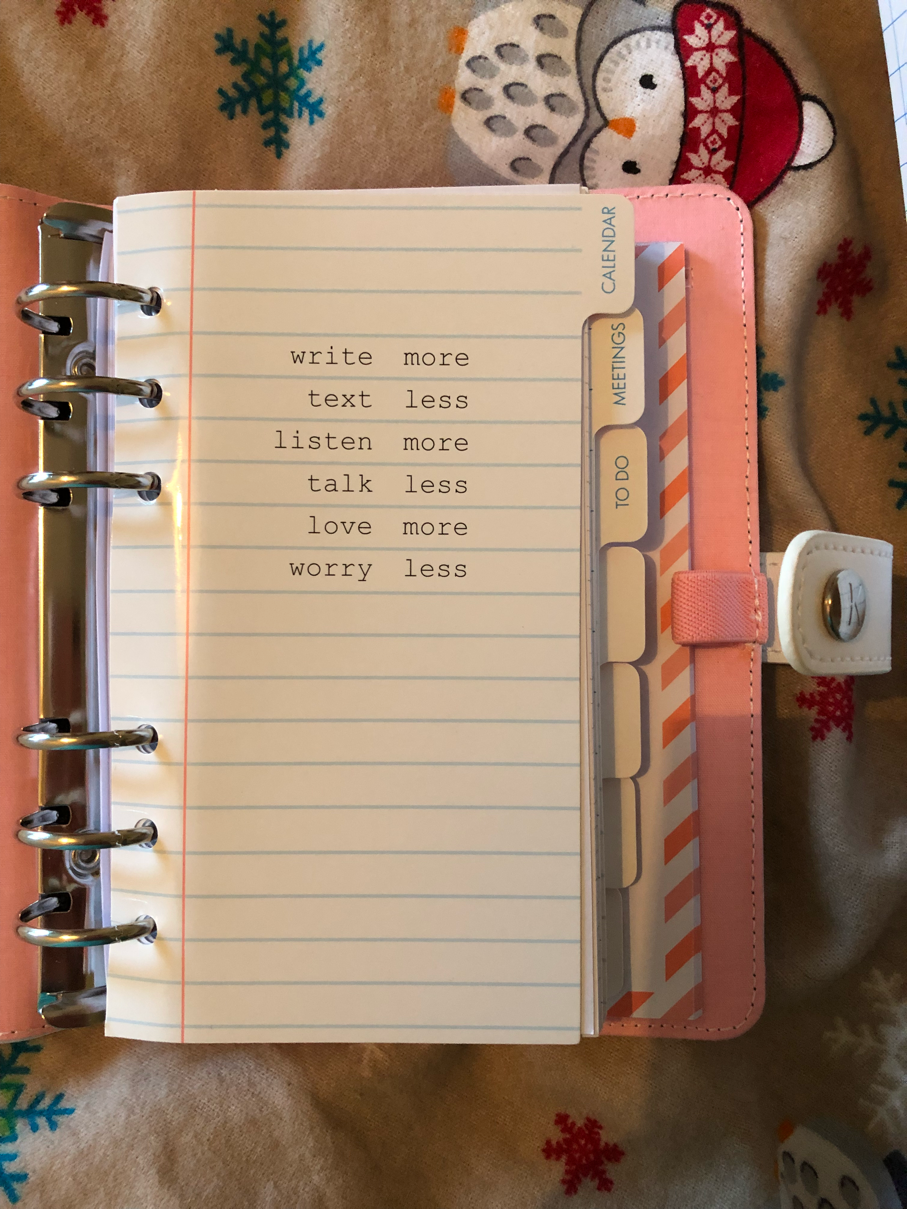 write more
text less
listen more
talk less
love more
worry less
CALENDAR
MEETINGS
TO DO